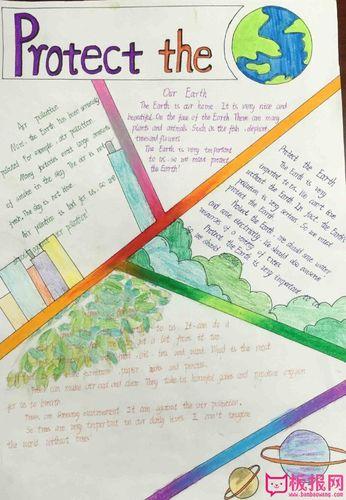 Protect the
Our Earth
The Earth is our home. It is very nice and
beautiful. On the face of the Earth. There are many
plants and animals. Such as the fish, elephant
trees and flowers.
The Earth is very important
to us. so we must protect
the Earth!
Air pollution
Now, the Earth has been seriously
polluted for example: air pollution.
Many factories emit large amounts
of smoke in the sky. The air is not
fresh. The sky is not blue.
Air pollution is bad for us, so we
air pollution!
Protect the Earth
The Earth is very
important to us. We can't live
without the Earth. In fact, the Earth
pollution is very serious. So, we must
protect the Earth.
Protect the Earth, we should save water,
and save electricity. We should also conserve
resources of energy of Earth.
Protect the Earth is very important
we should!
to us. It can do a
a lot from it too
The most
paper, books and pencils.
can make our air clear. They take in harmful gases and produce oxygen
for us to breath
Trees are Greening environment. It can against the air pollution.
So trees are very important to our daily lives. I can't imagine
the world without trees!
板报网
www.banbaowang.com